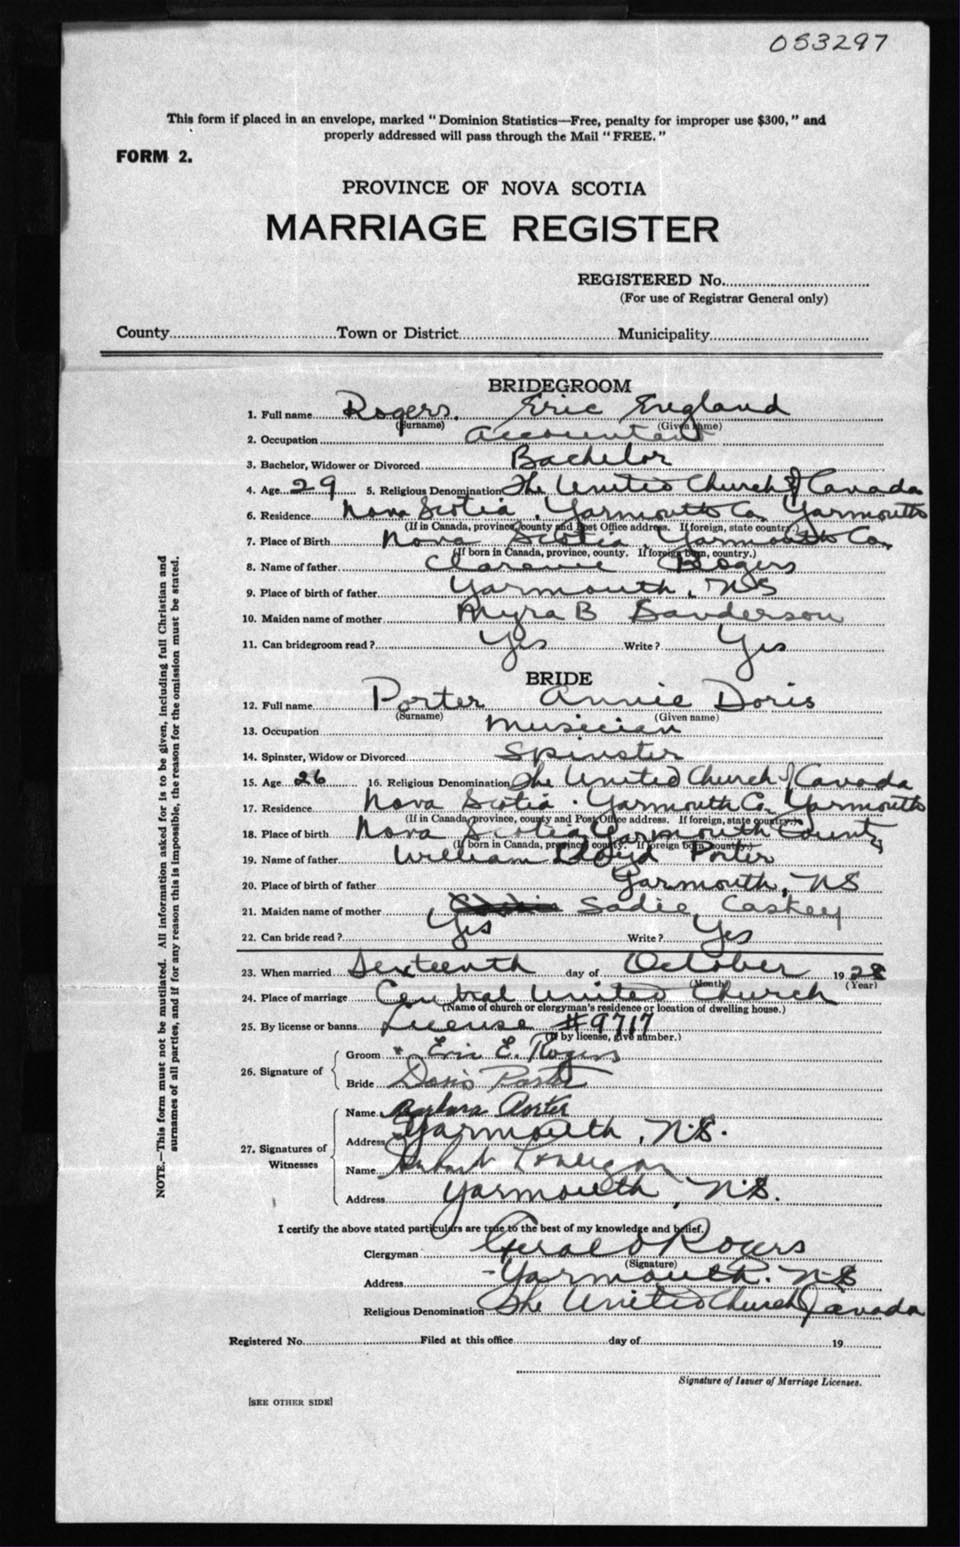 053297
This form if placed in an envelope, marked "Dominion Statistics—Free, penalty for improper use $300," and
properly addressed will pass through the Mail "FREE."
FORM 2.
PROVINCE OF NOVA SCOTIA
MARRIAGE REGISTER
REGISTERED No.
(For use of Registrar General only)
County Town or District Municipality
BRIDEGROOM
1. Full name Rogers. Eric England
(Surname) (Given name)
2. Occupation accountant
3. Bachelor, Widower or Divorced Bachelor
4. Age 29 5. Religious Denomination The United Church of Canada
6. Residence Nova Scotia. Yarmouth Co. Yarmouth
(If in Canada, province, county and Post Office address. If foreign, state country.)
7. Place of Birth Nova Scotia, Yarmouth Co.
(If born in Canada, province, county. If foreign born, country.)
8. Name of father Clarence Rogers
9. Place of birth of father Yarmouth, NS
10. Maiden name of mother Myra B Sanderson
11. Can bridegroom read? Yes Write? Yes
BRIDE
12. Full name Porter Annie Doris
(Surname) (Given name)
13. Occupation Musician
14. Spinster, Widow or Divorced Spinster
15. Age 26 16. Religious Denomination The United Church of Canada
17. Residence Nova Scotia. Yarmouth Co. Yarmouth
(If in Canada, province, county and Post Office address. If foreign, state country.)
18. Place of birth Nova Scotia Yarmouth County
(If born in Canada, province, county. If foreign born, country.)
19. Name of father William Lloyd Porter
20. Place of birth of father Yarmouth, NS
21. Maiden name of mother Sadie Caskey
22. Can bride read? Yes Write? Yes
23. When married Sixteenth day of October 1928
(Month) (Year)
24. Place of marriage Central United Church
(Name of church or clergyman's residence or location of dwelling house.)
25. By license or banns License #9717
(If by license, give number.)
26. Signature of
Groom Eric E. Rogers
Bride Doris Porter
27. Signatures of Witnesses
Name Barbara Porter
Address Yarmouth, N.S.
Name
Address Yarmouth, N.S.
I certify the above stated particulars are true to the best of my knowledge and belief.
Clergyman Gerald Rogers
(Signature)
Address Yarmouth. N.S
Religious Denomination The United Church of Canada
Registered No. Filed at this office day of 19
Signature of Issuer of Marriage Licenses.
[SEE OTHER SIDE]
NOTE.—This form must not be mutilated. All information asked for is to be given, including full Christian and
surnames of all parties, and if for any reason this is impossible, the reason for the omission must be stated.